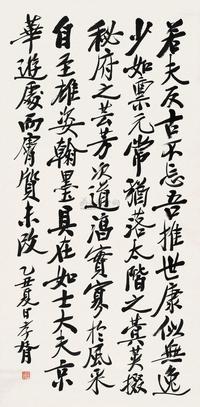 若夫反古不忘吾推世康似無逸
少如票元常猶落太階之蓂英掇
秘府之芸芳次道鴻寶寡於風采
自至雄姿翰墨具在如士大夫京
華遊處而膚質未改 乙丑夏日孝胥